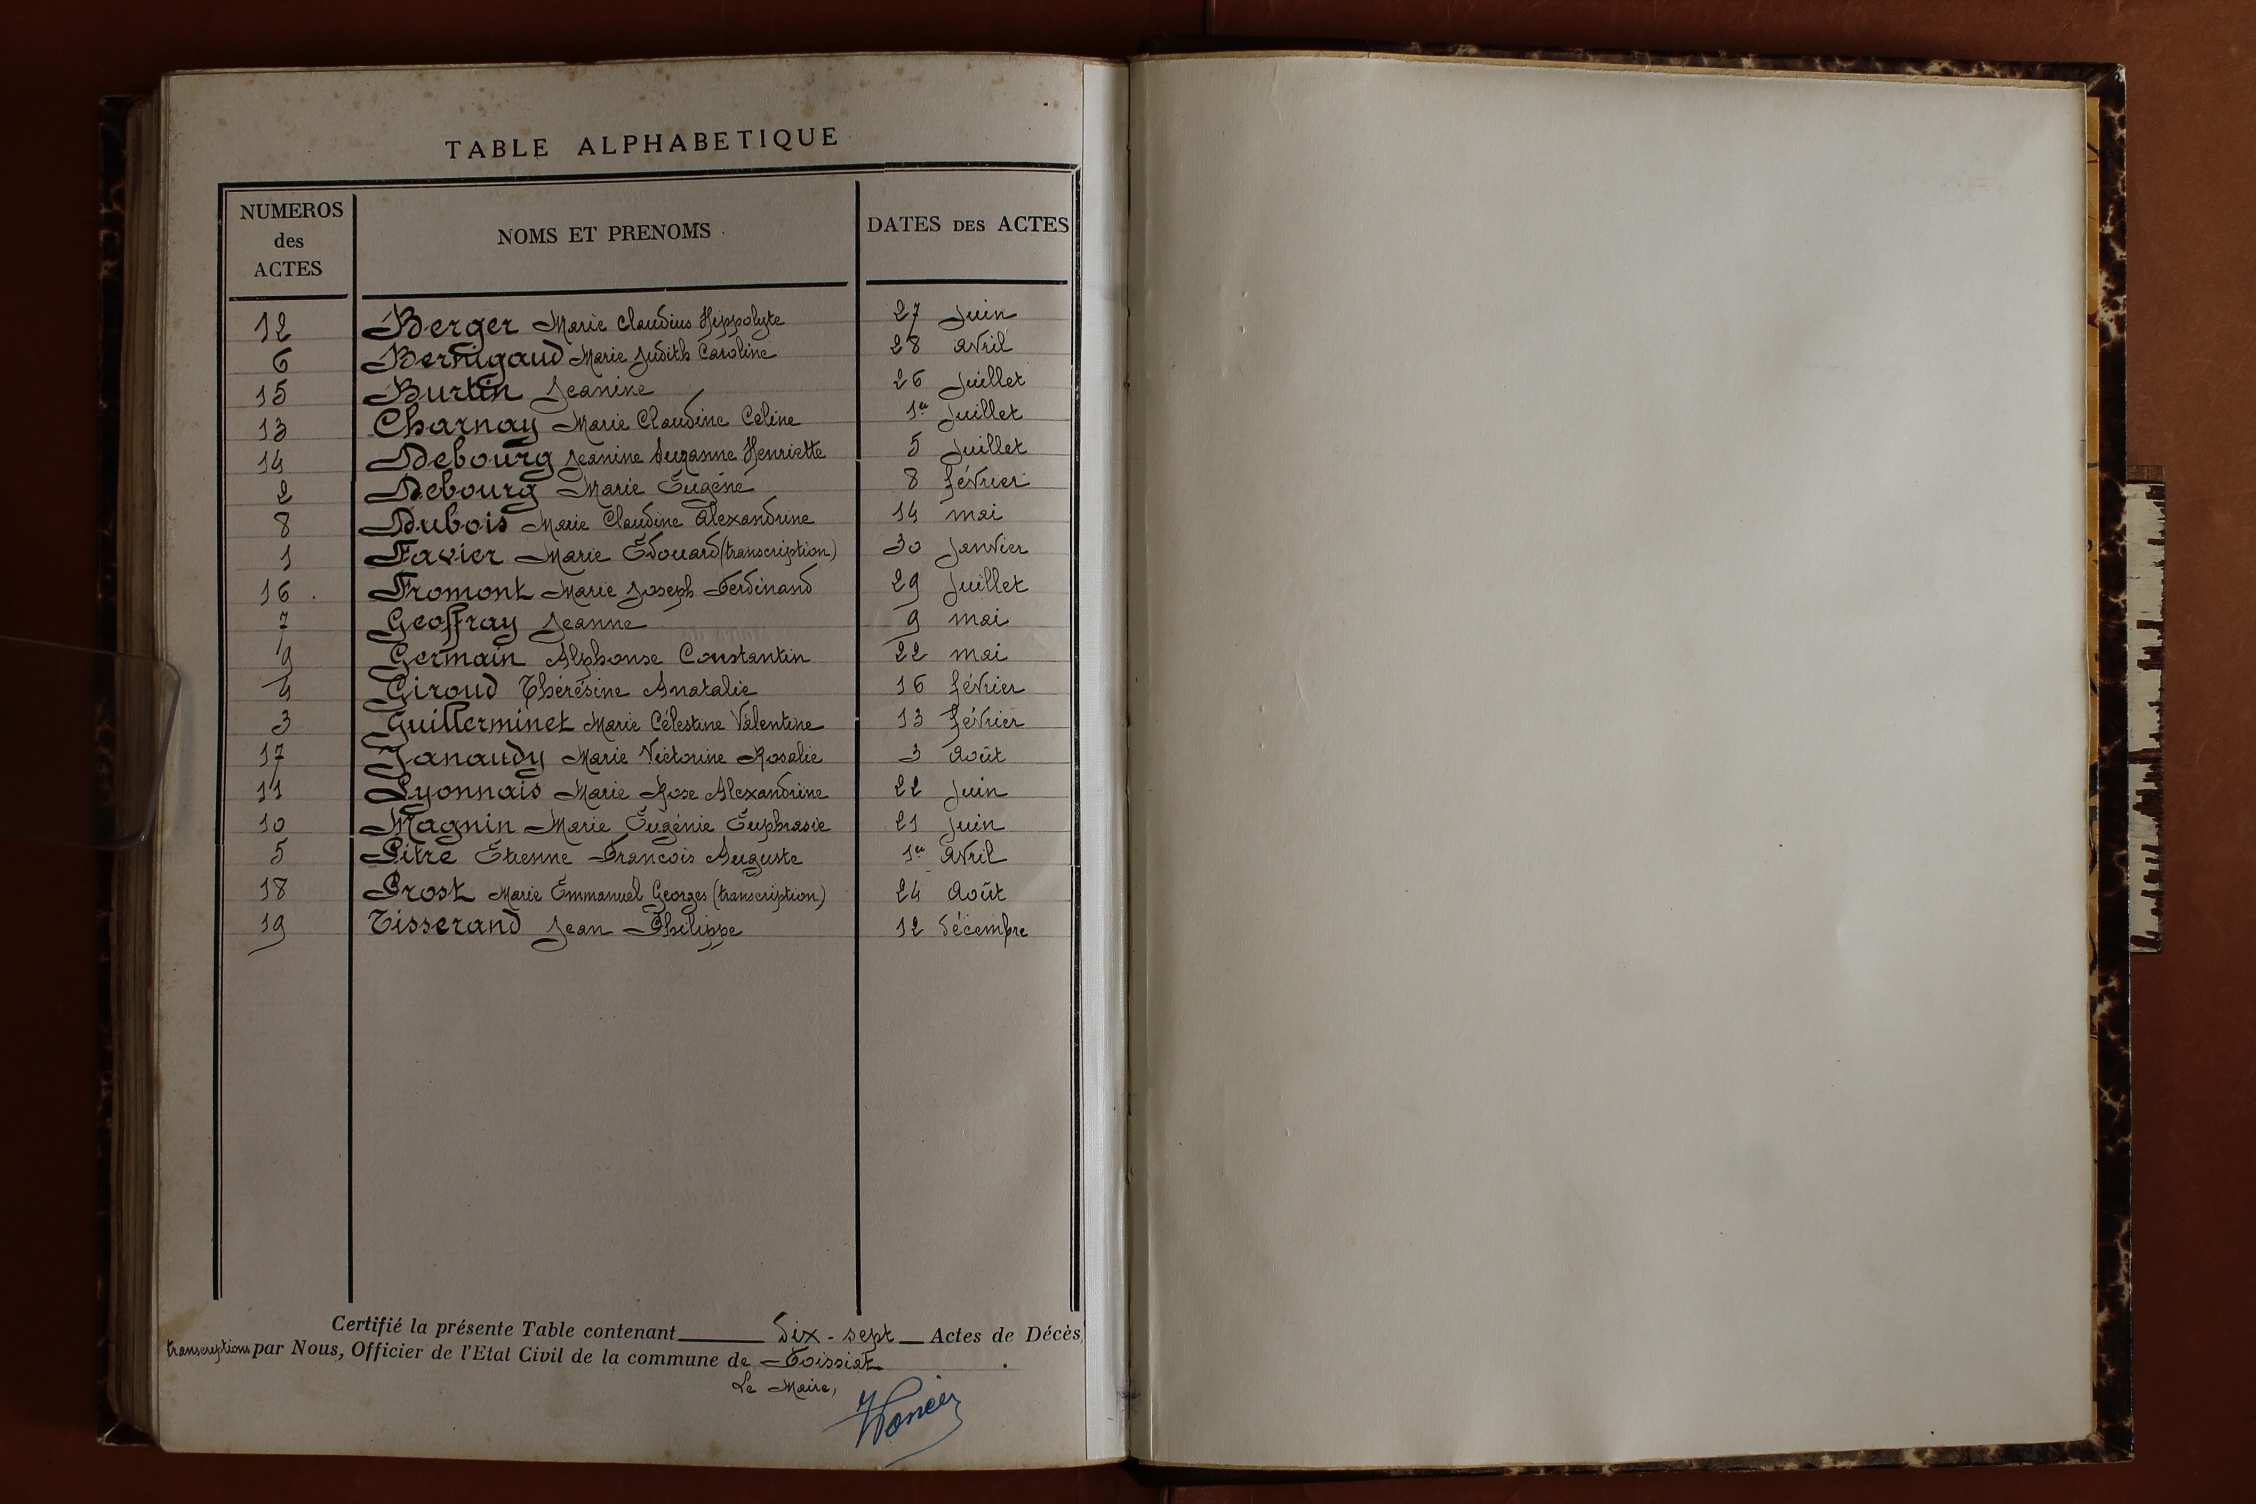 TABLE ALPHABETIQUE
NUMEROS des ACTES
NOMS ET PRENOMS
DATES DES ACTES
12 Berger Marie Claudius Hippolyte 27 Juin
6 Bernigaud Marie Judith Caroline 28 avril
15 Burtin Jeanine 26 Juillet
13 Charnay Marie Claudine Celine 1er Juillet
14 Debourg Jeanine Suzanne Henriette 5 Juillet
2 Debourg Marie Eugène 8 février
8 Dubois Marie Claudine Alexandrine 14 mai
1 Favier Marie Édouard (transcription) 30 Janvier
16 Fromont Marie Joseph Ferdinand 29 Juillet
7 Geoffray Jeanne 9 mai
9 Germain Alphonse Constantin 22 mai
4 Giroud Thérésine Anatalie 16 février
3 Guillerminet Marie Célestine Valentine 13 février
17 Janaudy Marie Victorine Rosalie 3 Août
11 Lyonnais Marie Rose Alexandrine 22 Juin
10 Magnin Marie Eugénie Euphrasie 21 Juin
5 Pitre Etienne François Auguste 1er Avril
18 Prost Marie Emmanuel Georges (transcription) 24 Août
19 Tisserand Jean Philippe 12 décembre
Certifié la présente Table contenant dix-sept Actes de Décès,
transcriptions par Nous, Officier de l'Etat Civil de la commune de Foissiat
Le Maire,